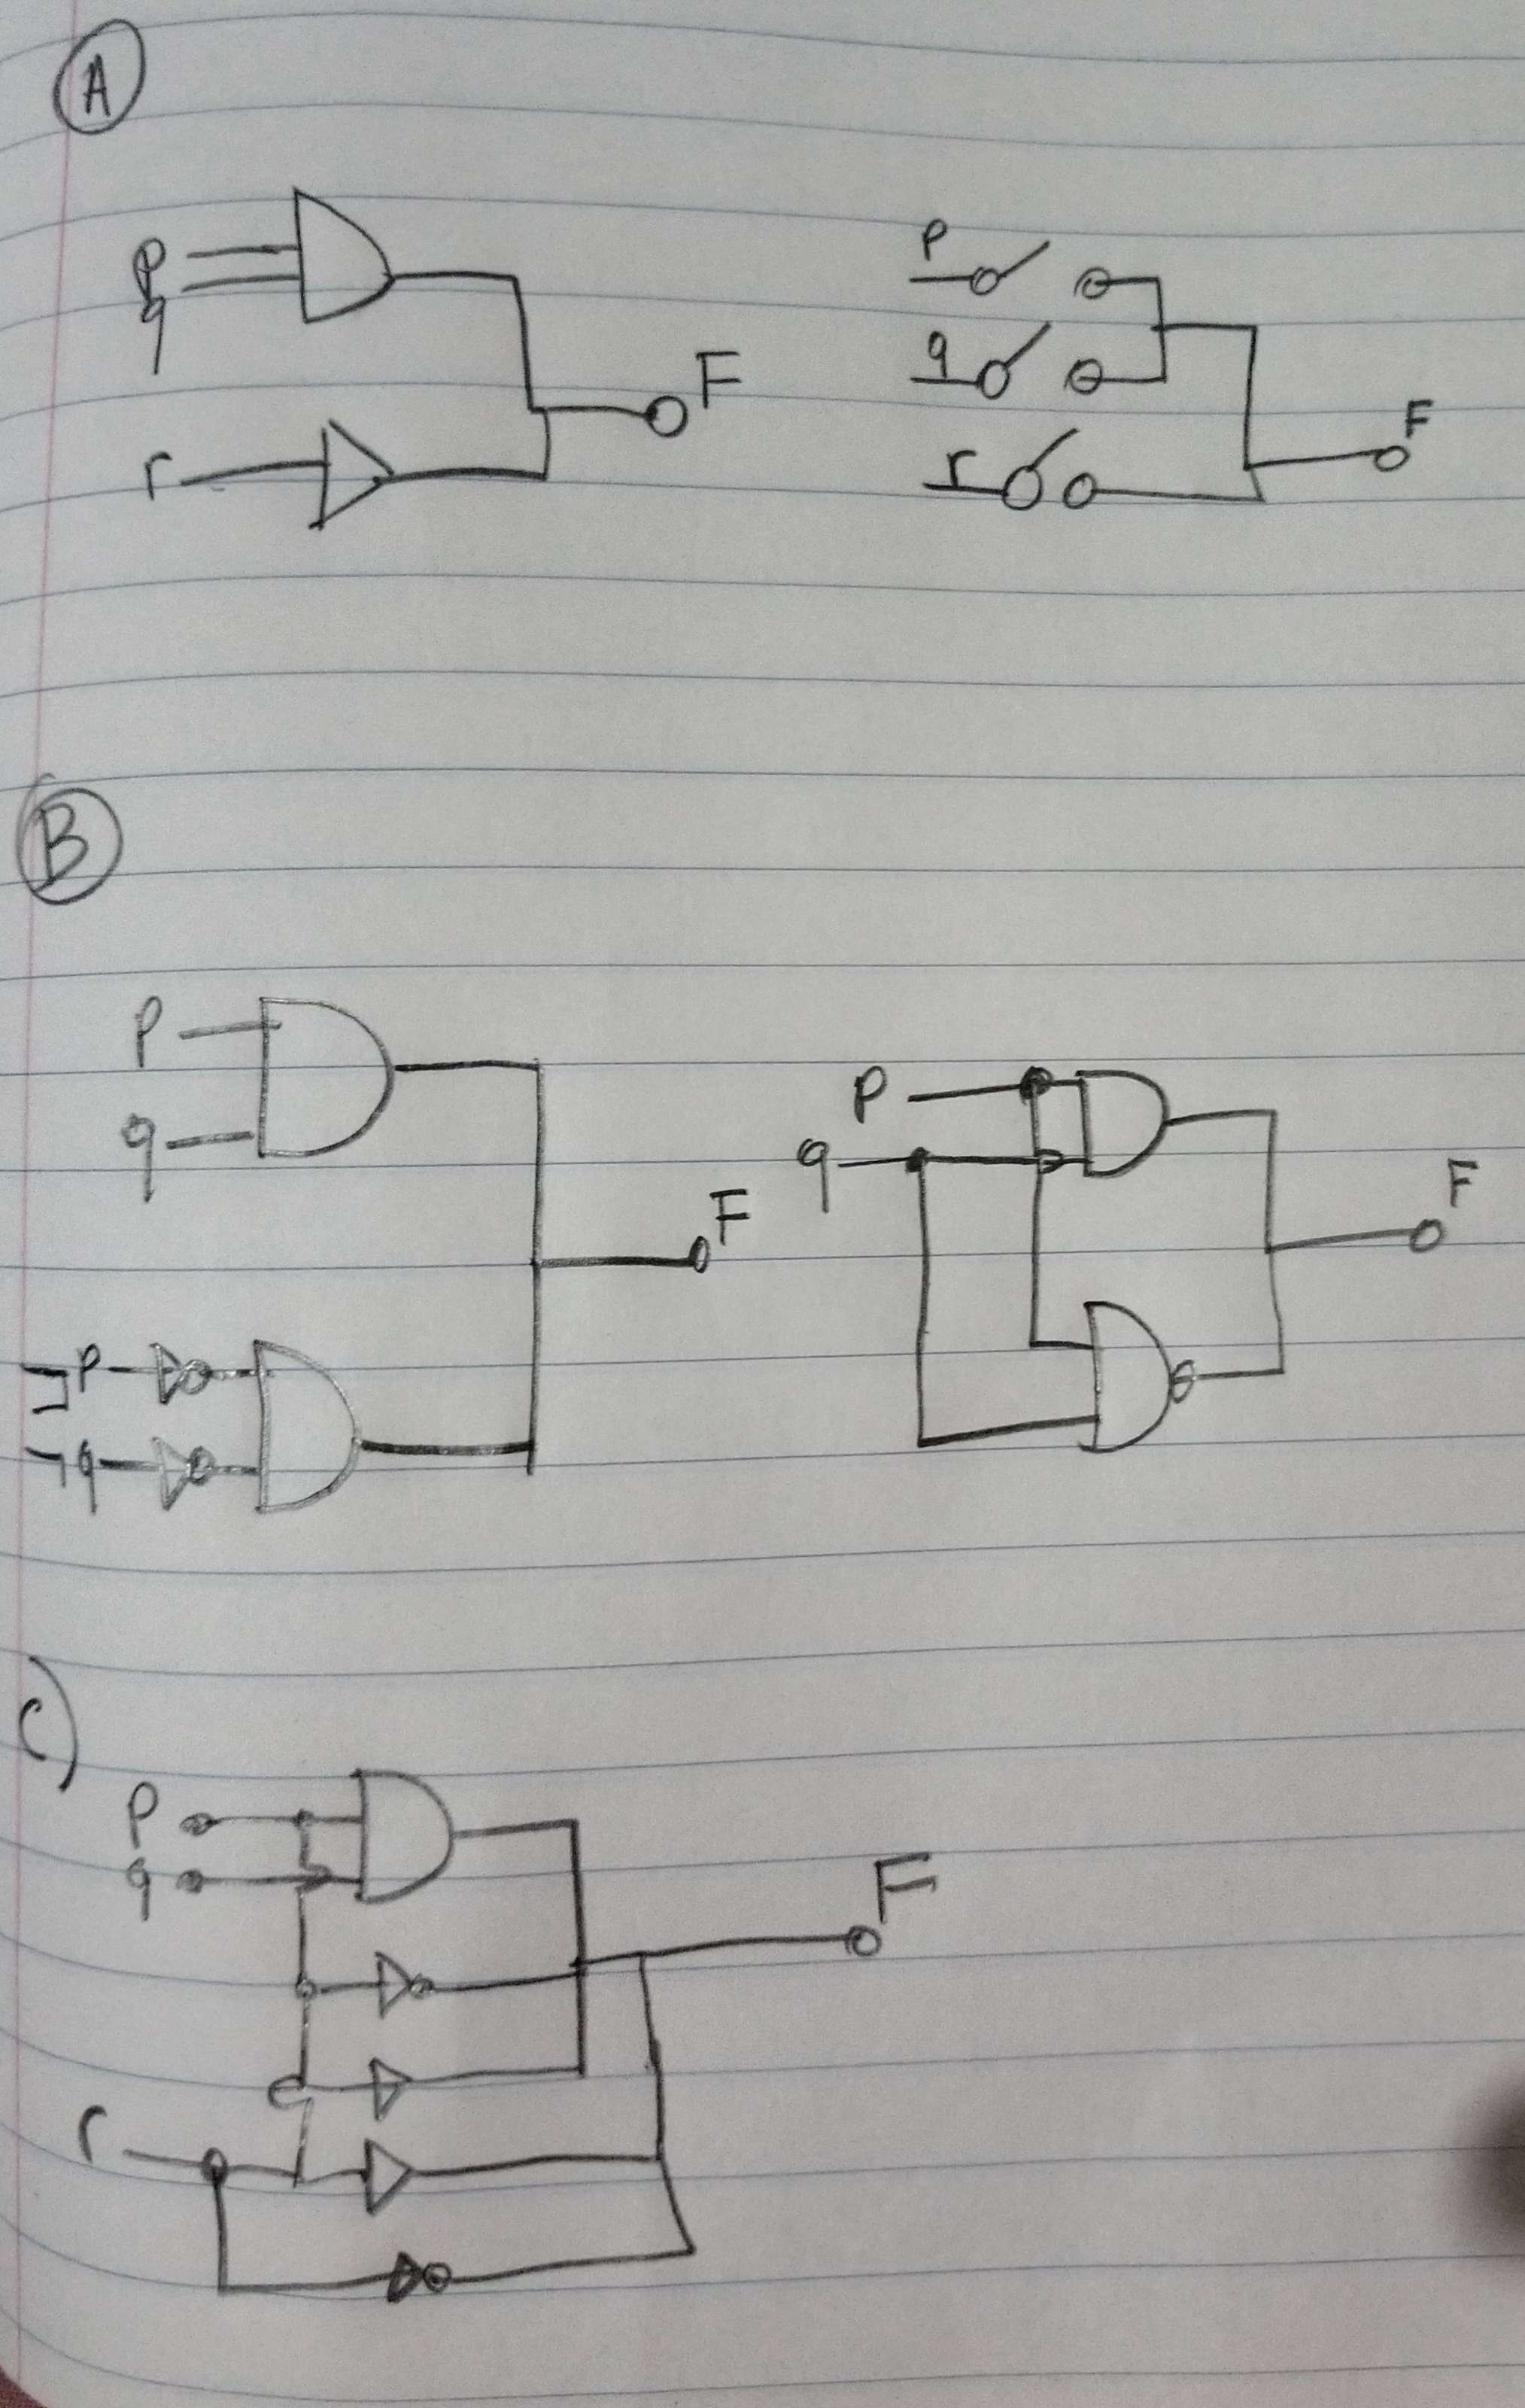 A
p
q
r
F
p
q
r
F
B
p
q
F
¬p
¬q
p
q
F
C)
p
q
r
F